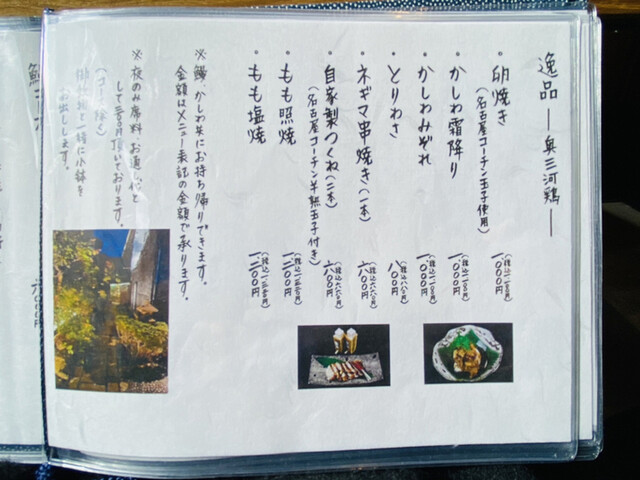 逸品 ― 奥三河鶏 ―
・卵焼き
(名古屋コーチン玉子使用)
(税込一一〇〇円)
一、〇〇〇円
・かしわ霜降り
(税込一一〇〇円)
一、〇〇〇円
・かしわみぞれ
(税込一一〇〇円)
一、〇〇〇円
・とりわさ
(税込八八〇円)
八〇〇円
・ネギマ串焼き(一本)
(税込六六〇円)
六〇〇円
・自家製つくね(二本)
(名古屋コーチン半熟玉子付き)
(税込六六〇円)
六〇〇円
・もも照焼
(税込一三二〇円)
一、二〇〇円
・もも塩焼
(税込一三二〇円)
一、二〇〇円
※鰻・かしわ共にお持ち帰りできます。
金額はメニュー表記の金額で承ります。
※夜のみ席料・お通し代と
して三〇〇円頂いております。
(コース除く)
お出しします。